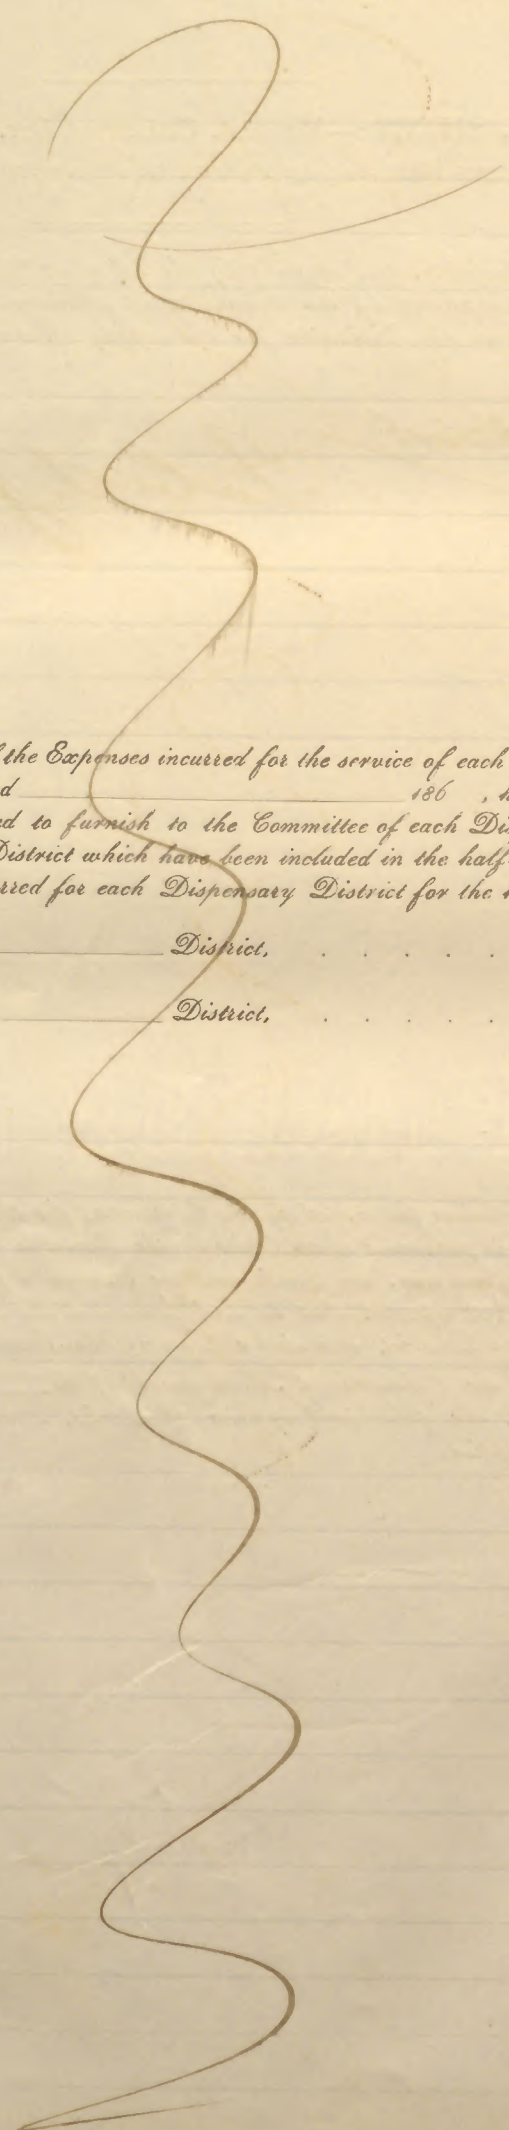 the Expenses incurred for the service of each
186 ,
to furnish to the Committee of each
District which have been included in the half
for each Dispensary District for the
District, . . . . .
District, . . . . .